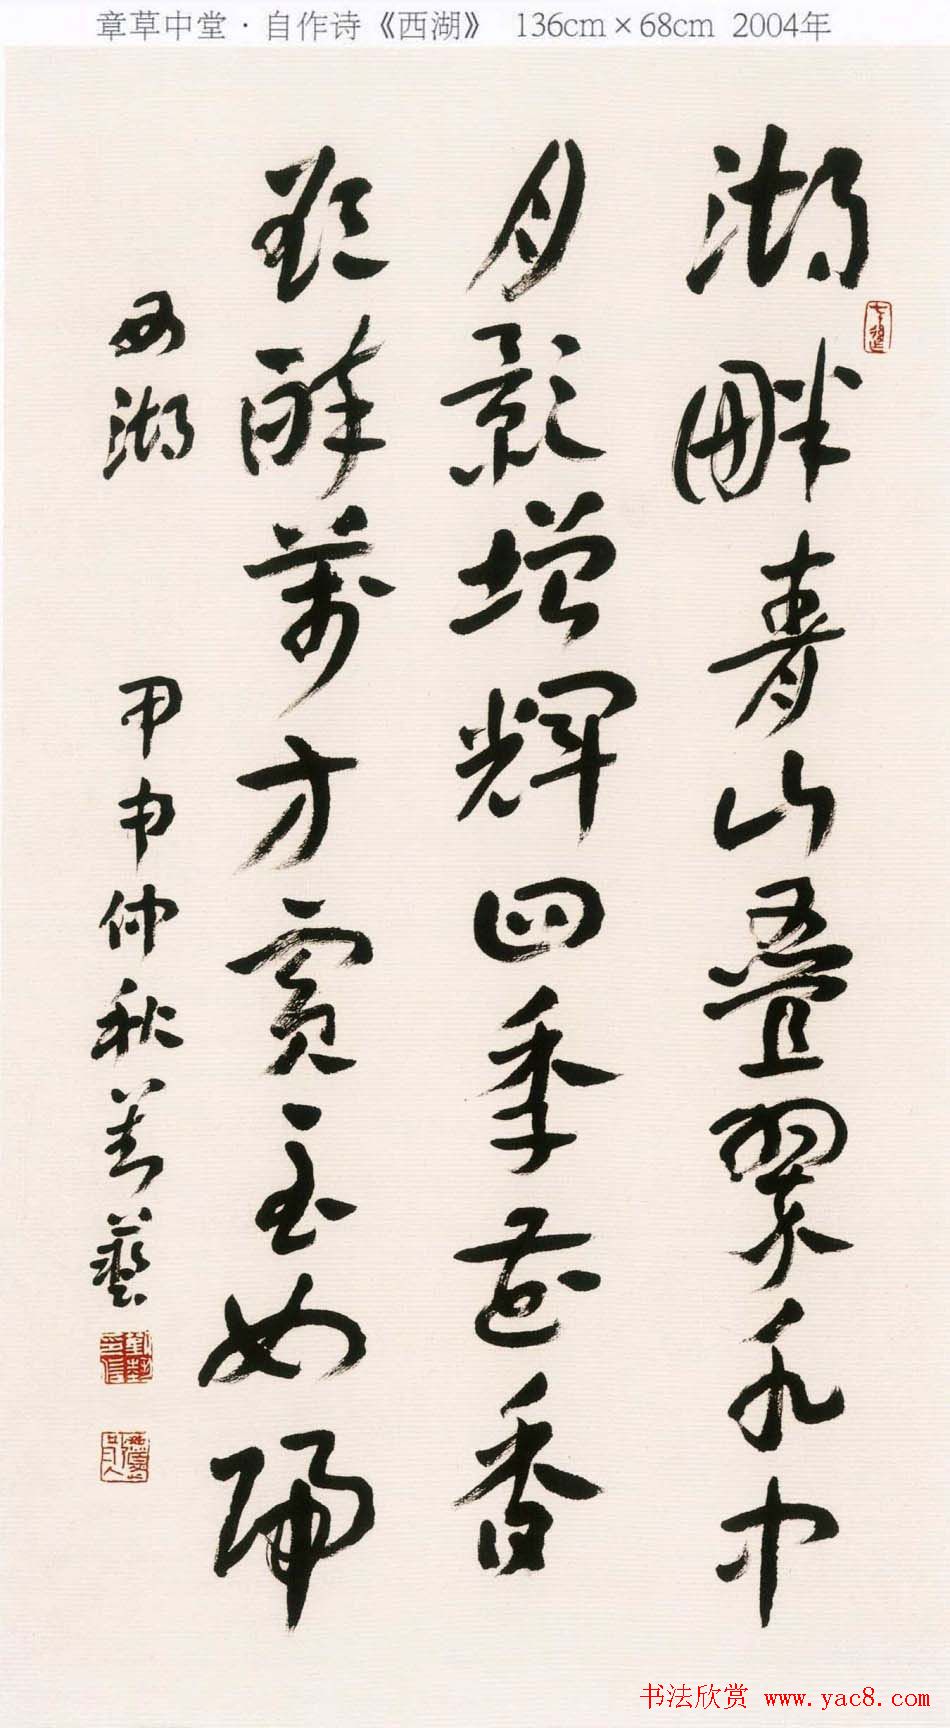 章草中堂·自作诗《西湖》 136cm×68cm 2004年
湖畔青山叠翠水中
月影增辉四季花香
歌醉万方宾至如归
西湖
甲申仲秋善艺
书法欣赏 www.yac8.com